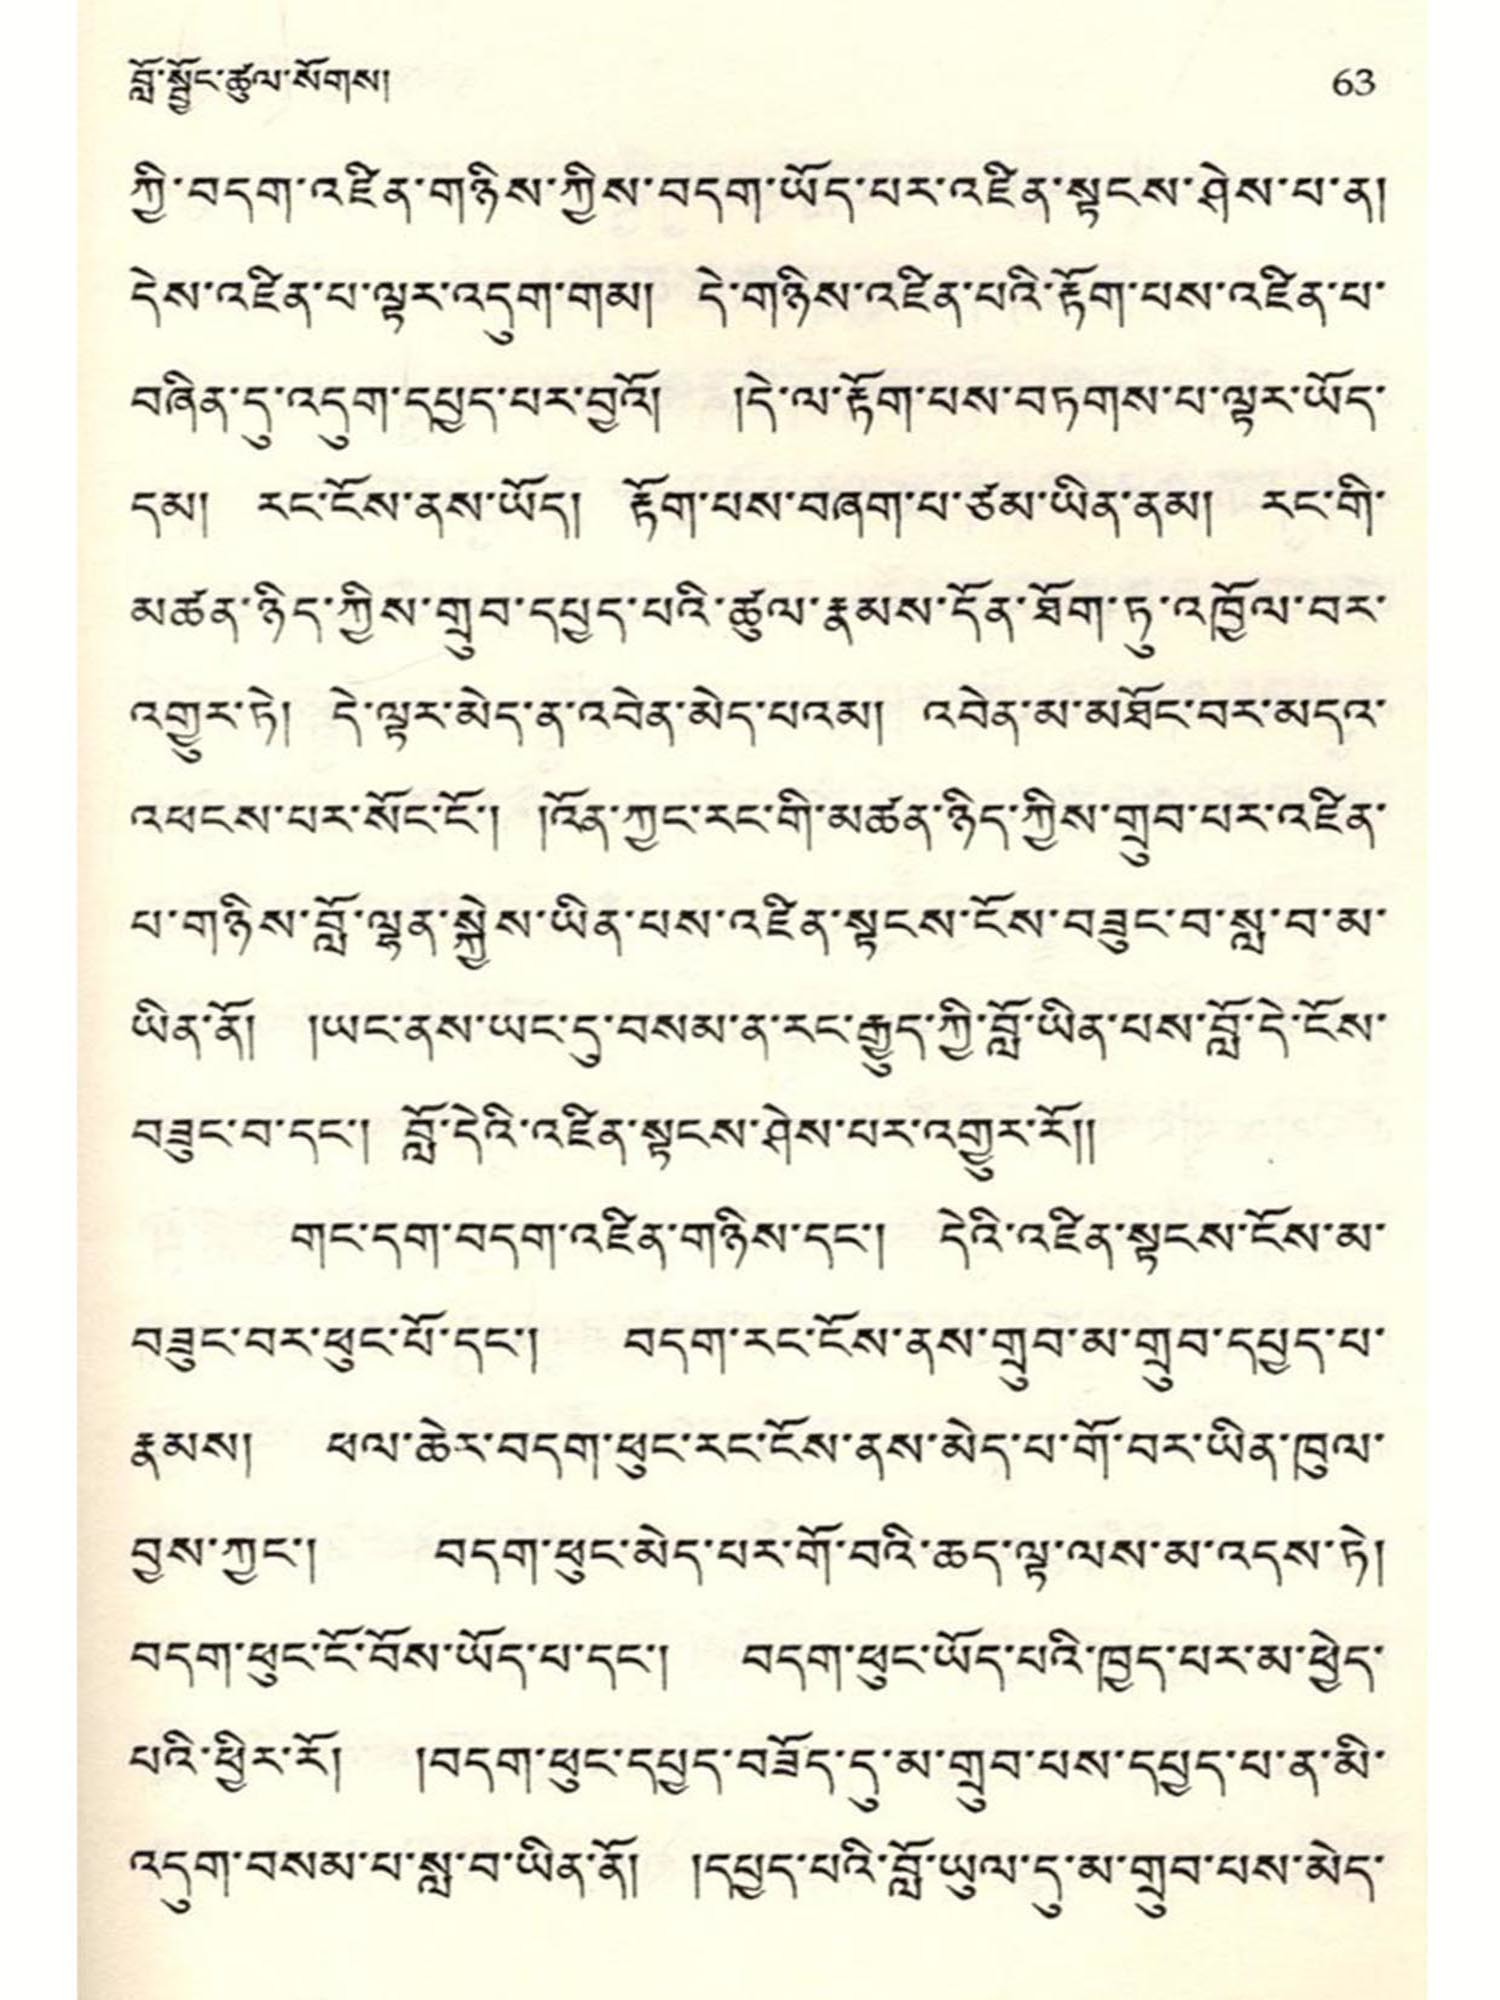 བློ་སྦྱོང་ཚུལ་སོགས། 63
ཀྱི་བདག་འཛིན་གཉིས་ཀྱིས་བདག་ཡོད་པར་འཛིན་སྟངས་ཤེས་པ་ན།
དེས་འཛིན་པ་ལྟར་འདུག་གམ། དེ་གཉིས་འཛིན་པའི་རྟོག་པས་འཛིན་པ་
བཞིན་དུ་འདུག་དཔྱད་པར་བྱའོ། །དེ་ལ་རྟོག་པས་བཏགས་པ་ལྟར་ཡོད་
དམ། རང་ངོས་ནས་ཡོད། རྟོག་པས་བཞག་པ་ཙམ་ཡིན་ནམ། རང་གི་
མཚན་ཉིད་ཀྱིས་གྲུབ་དཔྱད་པའི་ཚུལ་རྣམས་དོན་ཐོག་ཏུ་འཁྱོལ་བར་
འགྱུར་ཏེ། དེ་ལྟར་མེད་ན་འབེན་མེད་པའམ། འབེན་མ་མཐོང་བར་མདའ་
འཕངས་པར་སོང་ངོ་། །འོན་ཀྱང་རང་གི་མཚན་ཉིད་ཀྱིས་གྲུབ་པར་འཛིན་
པ་གཉིས་བློ་ལྷན་སྐྱེས་ཡིན་པས་འཛིན་སྟངས་ངོས་བཟུང་བ་སླ་བ་མ་
ཡིན་ནོ། །ཡང་ནས་ཡང་དུ་བསམ་ན་རང་རྒྱུད་ཀྱི་བློ་ཡིན་པས་བློ་དེ་ངོས་
བཟུང་བ་དང་། བློ་དེའི་འཛིན་སྟངས་ཤེས་པར་འགྱུར་རོ།།
གང་དག་བདག་འཛིན་གཉིས་དང་། དེའི་འཛིན་སྟངས་ངོས་མ་
བཟུང་བར་ཕུང་པོ་དང་། བདག་རང་ངོས་ནས་གྲུབ་མ་གྲུབ་དཔྱད་པ་
རྣམས། ཕལ་ཆེར་བདག་ཕུང་རང་ངོས་ནས་མེད་པ་གོ་བར་ཡིན་ཁུལ་
བྱས་ཀྱང་། བདག་ཕུང་མེད་པར་གོ་བའི་ཆད་ལྟ་ལས་མ་འདས་ཏེ།
བདག་ཕུང་ངོ་བོས་ཡོད་པ་དང་། བདག་ཕུང་ཡོད་པའི་ཁྱད་པར་མ་ཕྱེད་
པའི་ཕྱིར་རོ། །བདག་ཕུང་དཔྱད་བཟོད་དུ་མ་གྲུབ་པས་དཔྱད་པ་ན་མི་
འདུག་བསམ་པ་སླ་བ་ཡིན་ནོ། །དཔྱད་པའི་བློ་ཡུལ་དུ་མ་གྲུབ་པས་མེད་